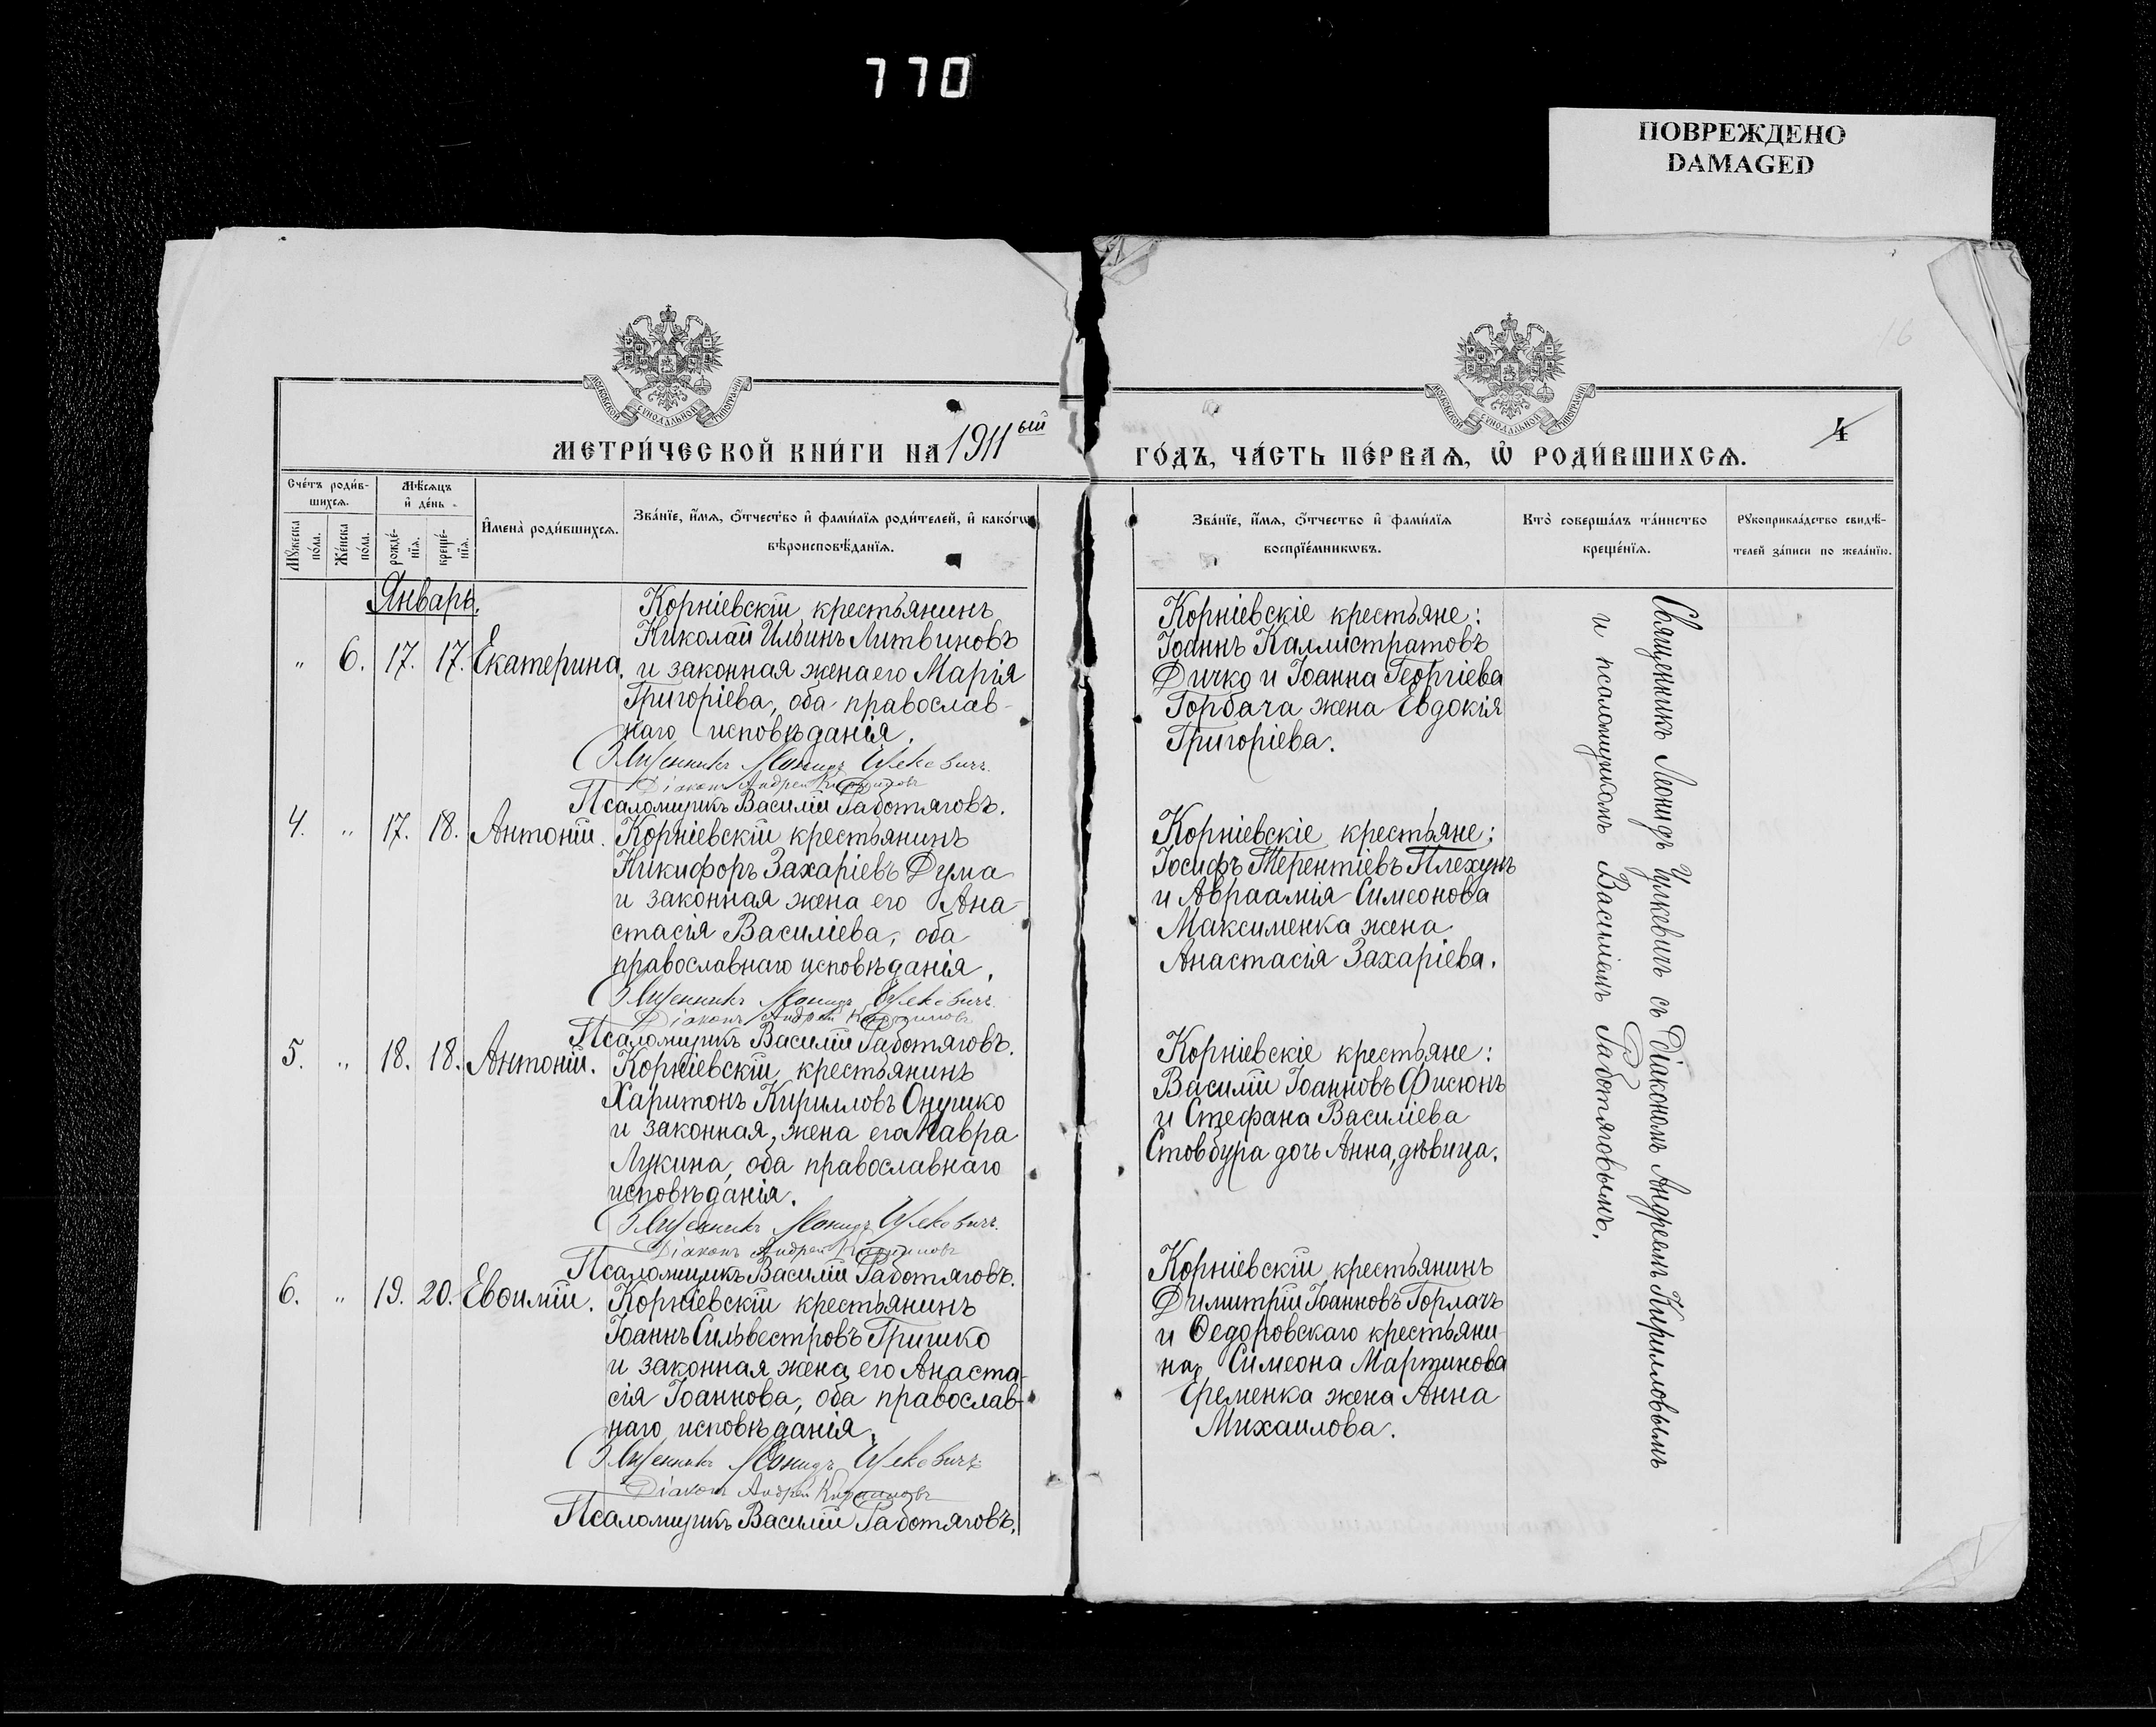 770
ПОВРЕЖДЕНО
DAMAGED
16
МОСКОВСКОЙ СУНОДАЛЬНОЙ ТИПОГРАФІИ
МОСКОВСКОЙ СУНОДАЛЬНОЙ ТИПОГРАФІИ
МЕТРИ́ЧЕСКОЙ КНИ́ГИ НА 1911ый
ГО́ДЪ, ЧА́СТЬ ПЕ́РВАѦ, Ѡ҆ РОДИ́ВШИХСѦ.
4
Сче́тъ роди́в-
шихсѧ.
Мѣ́сѧцъ
и҆ де́нь.
Мꙋ́жеска
по́ла.
Же́нска
по́ла.
рожде́-
нїѧ.
креще́-
нїѧ.
И҆мена̀ роди́вшихсѧ.
Зва́нїе, и҆́мѧ, ѻ҆́тчество и҆ фами́лїѧ роди́телей, и҆ како́гѡ
вѣроисповѣ́данїѧ.
Зва́нїе, и҆́мѧ, ѻ҆́тчество и҆ фами́лїѧ
воспрїе́мникѡвъ.
Кто̀ соверша́лъ та́инство
креще́нїѧ.
Рꙋкоприкла́дство свидѣ́-
телей за́писи по жела́нїю.
Январь.
" 6. 17. 17. Екатерина.
Корніевскій крестьянинъ
Николай Ильинъ Литвиновъ
и законная жена его Марія
Григоріева, оба православ-
наго исповѣданія.
Священникъ Леонидъ Цукевичъ
Діаконъ Андрей Кирилловъ
Псаломщикъ Василій Работяговъ.
Корніевскіе крестьяне:
Іоаннъ Каллистратовъ
Дичко и Іоанна Георгіева
Горбача жена Евдокія
Григоріева.
4. " 17. 18. Антоній.
Корніевскій крестьянинъ
Никифоръ Захаріевъ Дума
и законная жена его Ана-
стасія Василіева, оба
православнаго исповѣданія.
Священникъ Леонидъ Цукевичъ
Діаконъ Андрей Кирилловъ
Псаломщикъ Василій Работяговъ.
Корніевскіе крестьяне:
Іосифъ Терентіевъ Плехунъ
и Авраамія Симеонова
Максименка жена
Анастасія Захаріева.
5. " 18. 18. Антоній.
Корніевскій крестьянинъ
Харитонъ Кирилловъ Онушко
и законная жена его Мавра
Лукина, оба православнаго
исповѣданія.
Священникъ Леонидъ Цукевичъ
Діаконъ Андрей Кирилловъ
Псаломщикъ Василій Работяговъ.
Корніевскіе крестьяне:
Василій Іоанновъ Фисюнъ
и Стефана Василіева
Стовбура дочь Анна, дѣвица.
6. " 19. 20. Евѳимій.
Корніевскій крестьянинъ
Іоаннъ Сильвестровъ Гришко
и законная жена его Анаста-
сія Іоаннова, оба православ-
наго исповѣданія.
Священникъ Леонидъ Цукевичъ
Діаконъ Андрей Кирилловъ
Псаломщикъ Василій Работяговъ.
Корніевскій крестьянинъ
Димитрій Іоанновъ Горлачъ
и Ѳедоровскаго крестьяни-
на Симеона Мартинова
Еременка жена Анна
Михаилова.
Священникъ Леонидъ Цукевичъ съ Діакономъ Андреемъ Кирилловымъ
и псаломщикомъ Василіемъ Работяговымъ.